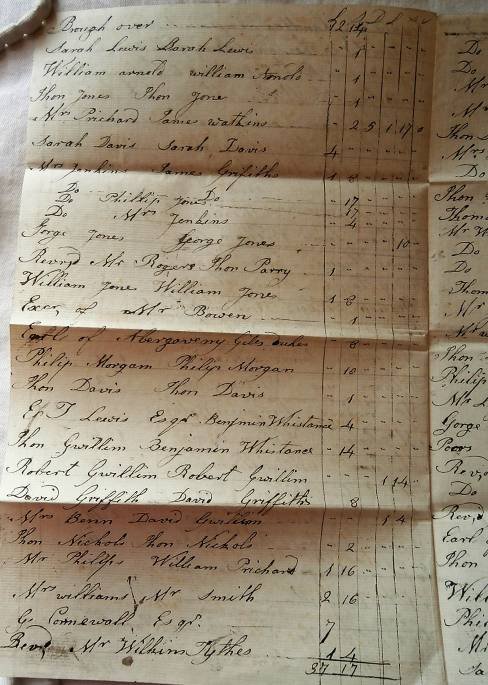 Brough over 12 14
Sarah Lewis Sarah Lewis " 1 " " "
William arnold william Arnold " 1 " " "
Thon Jones Thon Jone " 1 " " "
Mrs Prichard James watkins " 2 5 1 17 0
Sarah Davis Sarah Davis 4 " " " "
Mrs Jenkins James Grifiths 1 8 " " "
Do Phillip Jones Do " 17 " " "
Do Mrs Jenkins " 4 " " "
Jorge Jones George Jones " " " 10 "
Revrd Mr Rogers Thon Parry 1 " " "
William Jone William Jone 1 8 " " "
Exer of Mr Bowen " 1 " " "
of Abergaveny Giles " 8 " " "
Philip Morgam Philip Morgan " 10 " " "
Thon Davis Thon Davis " 1 " " "
Lewis Esqr Benjmin Whistance " 4 " " "
Thon Gwillim Benjamin Whistance " 14 " " "
Robert Gwillim Robert Gwillim " " 1 14
David Griffith David Griffiths " 8
Mrs Benn David Gwillim " " 1 4
Thon Nichols Thon Nichols " 2 " "
Mr Philips William Prichard 1 16 " "
Mrs williams Mr Smith 2 16 " "
G Cornewall Esqr 7
Revd Mr Wilkins Tythes 1 4
37 17
Do
Do
Mr
Thon
Mrs
Do
Thon
Thoma
Mr W
Do
Do
Thom
Mr
Thon
Philip
Mr
Gorge
Poors
Revd
Do
Revrd
Earl
Thon
Will
Phi